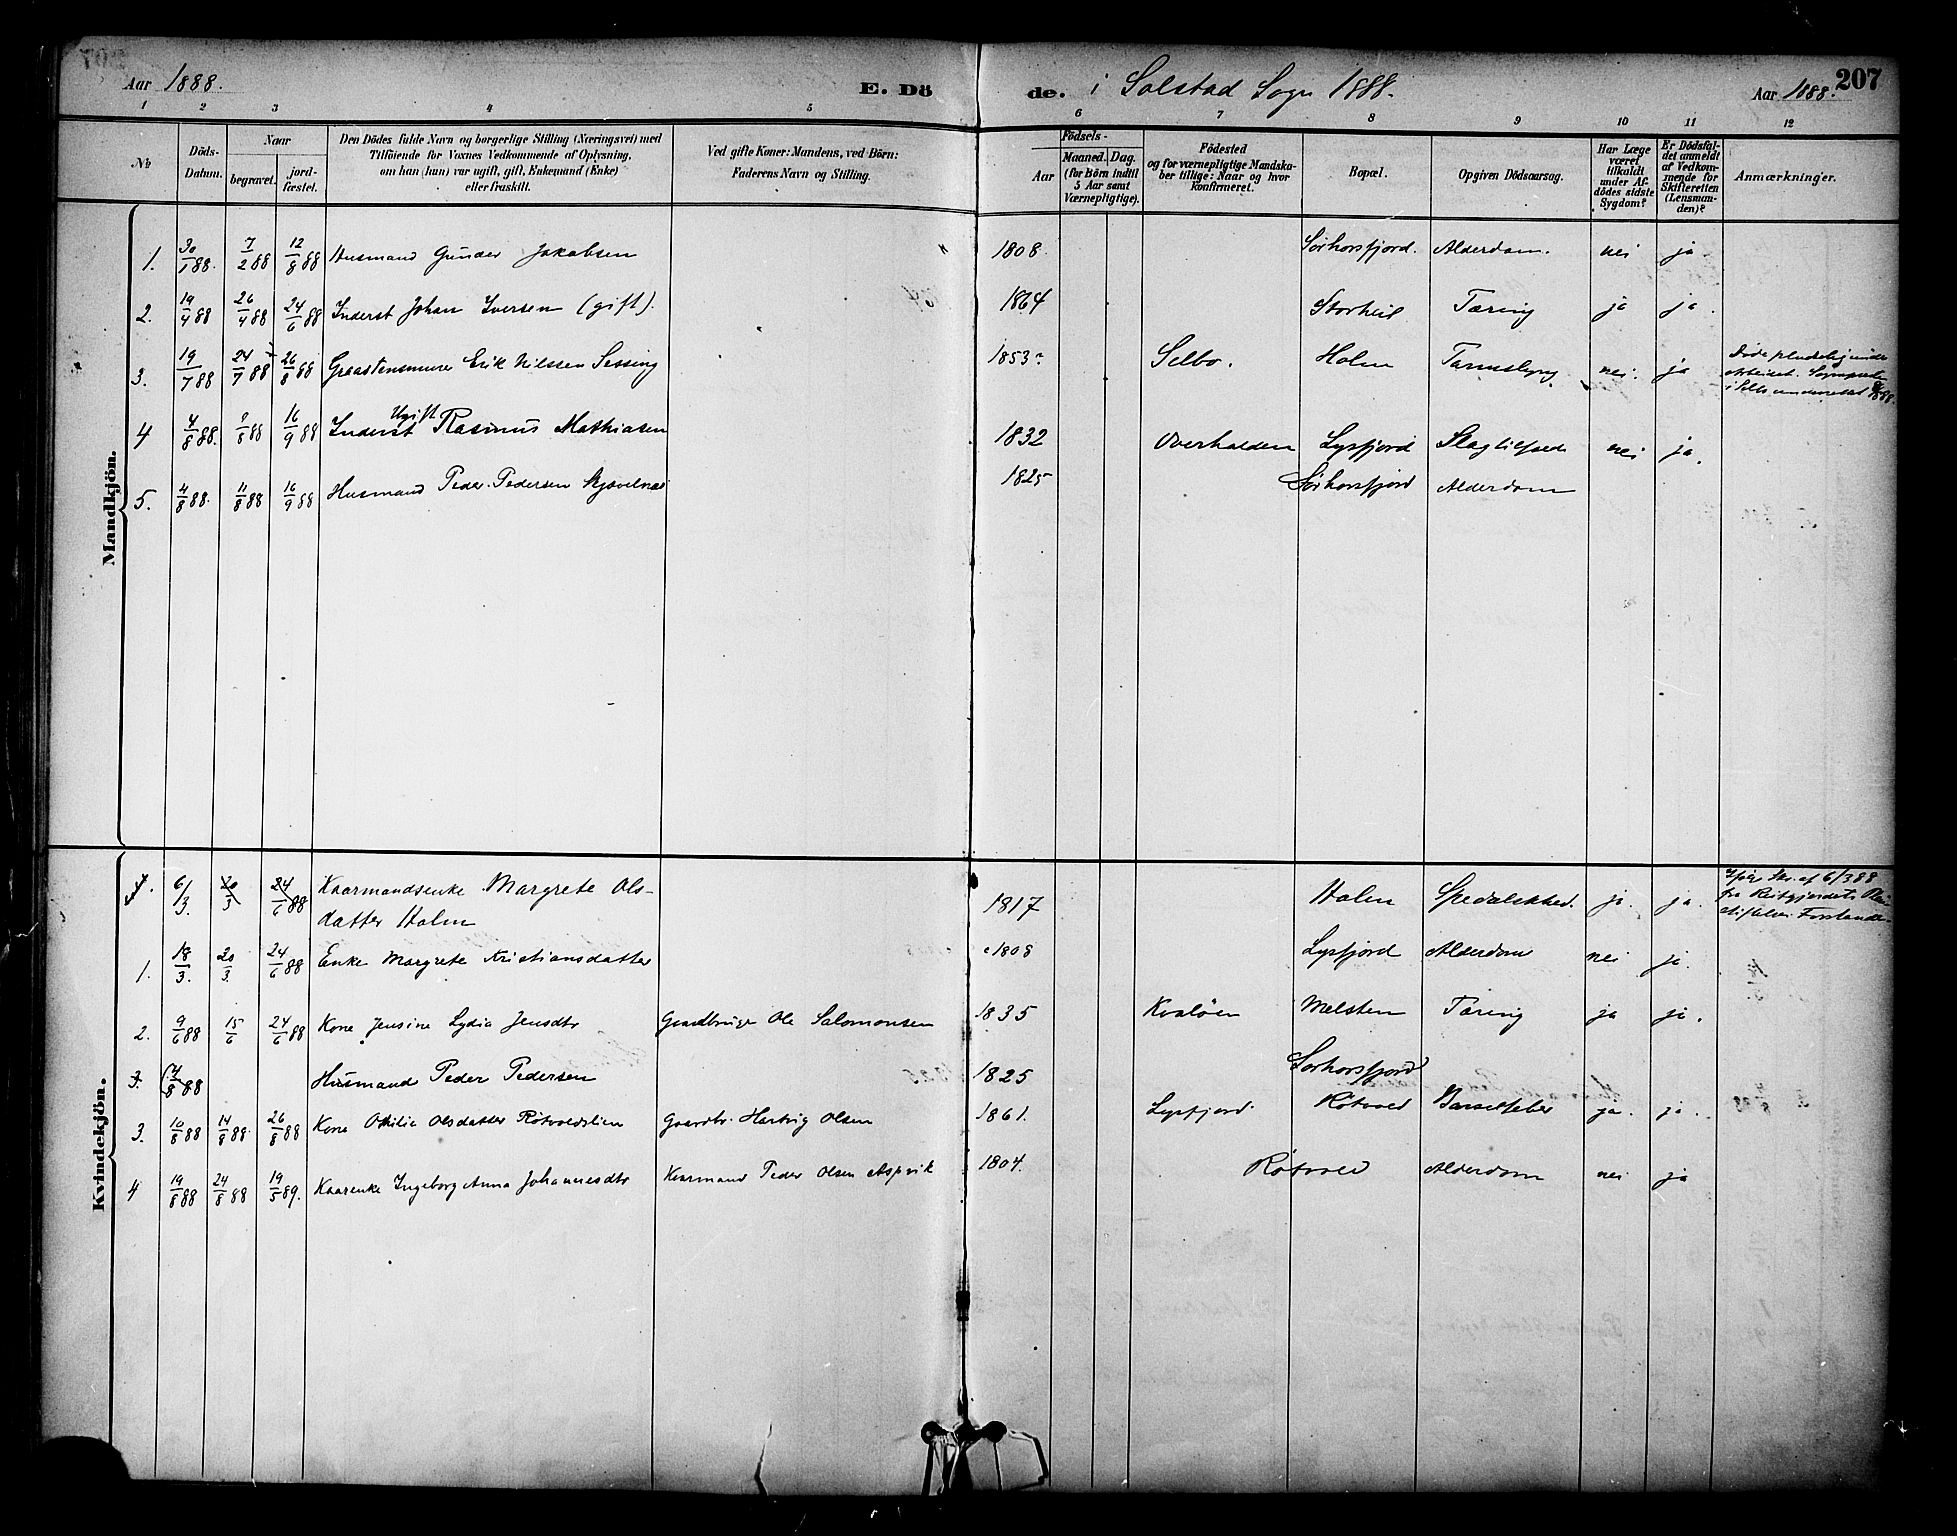 Aar 1888.
E. Dö
de. i Solstad Sogn 1888.
Aar 1888. 207
1 2 3 4 5 6 7 8 9 10 11 12
No
Döds-
Datum.
Naar
begravet.
jord-
fæstet.
Den Dödes fulde Navn og borgerlige Stilling (Næringsvei) med
Tilföiende for Voxnes Vedkommende af Oplysning,
om han (hun) var ugift, gift, Enkemand (Enke)
eller fraskilt.
Ved gifte Koner: Mandens, ved Börn:
Faderens Navn og Stilling.
Födsels-
Aar
Maaned. Dag.
(for Börn indtil
5 Aar samt
Værnepligtige).
Födested
og for værnepligtige Mandska-
ber tillige: Naar og hvor
Konfirmeret.
Bopæl.
Opgiven Dödsaarsag.
Har Læge
været
tilkaldt
under Af-
dödes sidste
Sygdom?
Er Dödsfal-
det anmeldt
af Vedkom-
mende for
Skifteretten
(Lensman-
den)?
Anmærkninger.
Mandkjön.
1. 30/1 88. 7/2 88 12/8 88 Husmand Gunder Jakobsen " 1808. Sörhorsfjord. Alderdom. nei ja
2. 19/4 88 26/4 88 24/6 88 Inderst Johan Iversen (gift). 1864 Storheil Tæring ja ja.
3. 19/7 88 24/7 88 26/8 88 Graastensmurer Erik Nilssen Sessing 1853 Selbo. Holm nei. ja
Döde pludselig under
Arbeidet.
4 4/8 88. 9/8 88 16/9 88 Inderst Ugift Rasmus Mathiasen 1832 Overhalden Lysfjord Slagtilfælde nei ja.
5. 4/8 88. 11/8 88 16/9 88 Husmand Peder Pedersen 1825 Sörhorsfjord Alderdom
Kvindekjön.
1. 6/3. 20/3 24/6 88 Kaarmandsenke Margrete Ols-
datter Holm 1817 Holm Spedalskhed. ja. ja.
af 6/3 88
fra Reitgjerdets
Forstander
1. 18/3. 20/3. 24/6 88 Enke Margrete Kristiansdatter 1808 Lysfjord Alderdom nei ja.
2. 9/6 88 15/6 24/6 88 Kone Jensine Lydia Jensdtr Gaardbruger Ole Salomonsen 1835 Kvalöen Melstem Tæring ja ja.
3. 4/8 88 Husmand Peder Pedersen 1825 Sörhorsfjord
3. 10/8 88 14/8 88. 26/8 88 Kone Othilie Olsdatter Rötvoldslien Gaardbr. Hartvig Olsen 1861. Lysfjord. Rötvold Barselfeber ja. ja.
4 19/8 88 24/8 88 19/5 89. Kaarenke Ingeborg Anna Johannesdtr Kaarmand Peder Olsen Aspvik 1804. Rötvold Alderdom nei ja